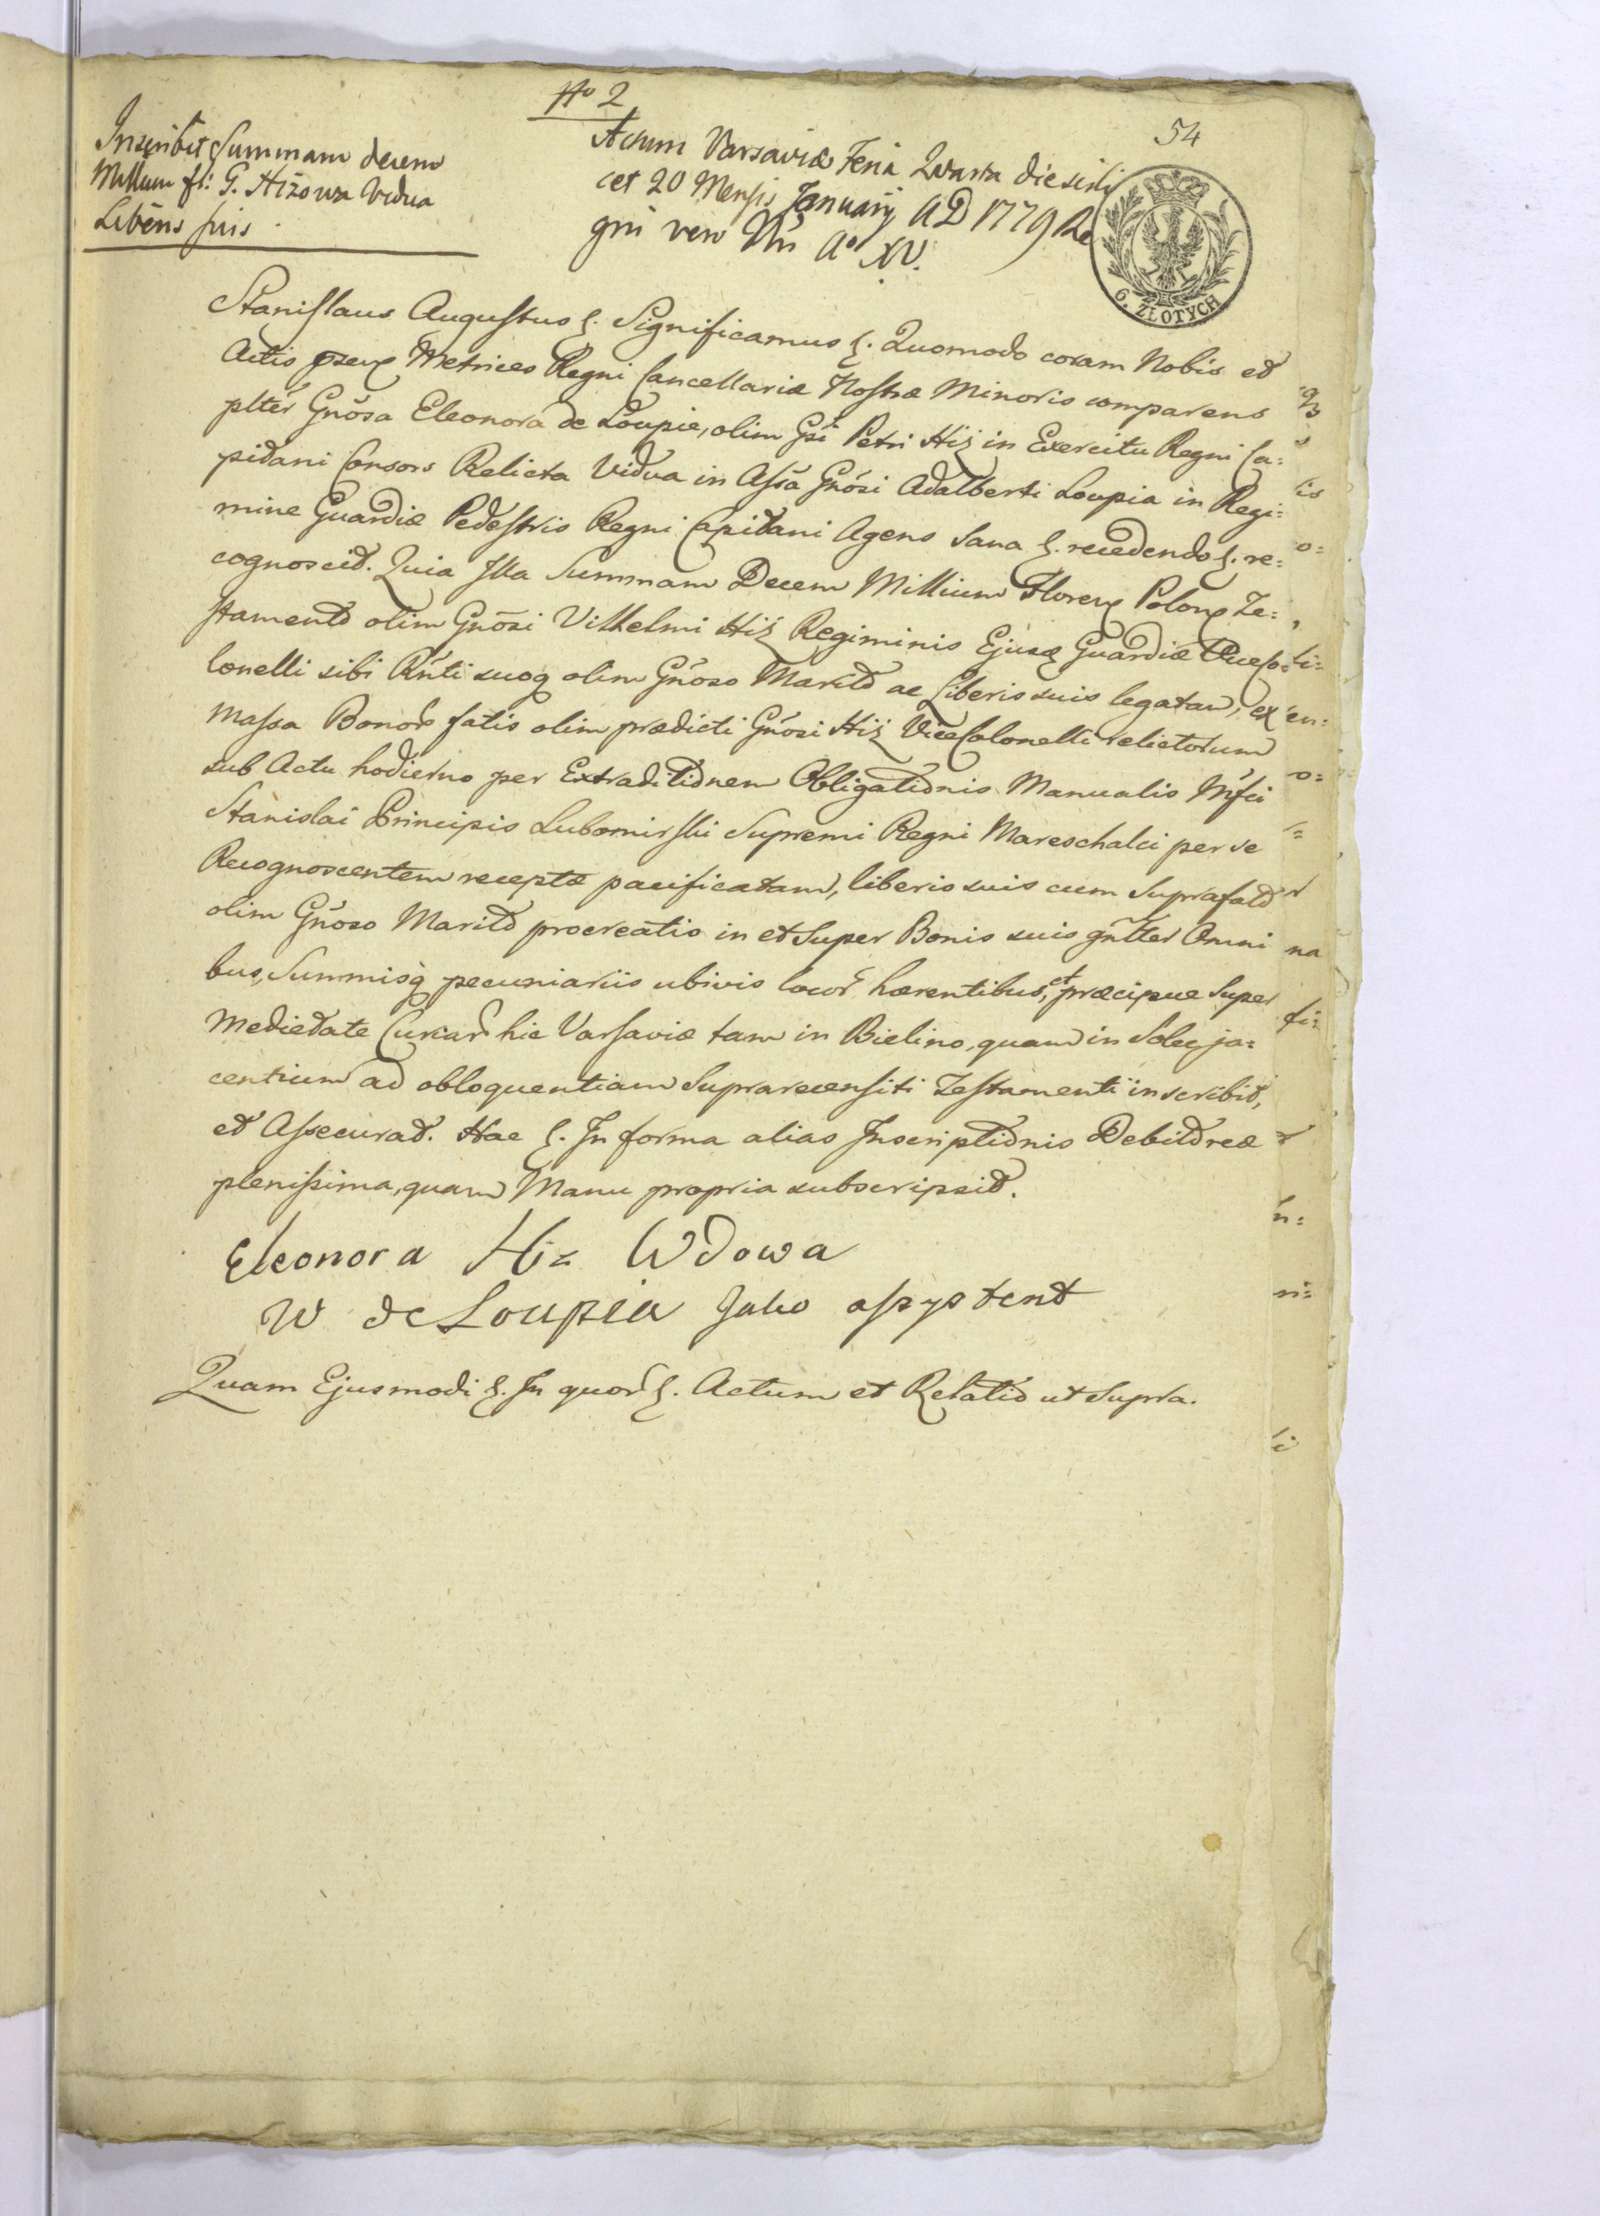 No 2
54
Inscribit Summam decem
Millium fl: G. Hiżowa Vidua
Liberis suis
Actum Varsaviæ Feria Quarta die scili
cet 20 Mensis January AD 1779 Re
gni vero Nri Ao XV.
6. ZŁOTYCH
Stanislaus Augustus &. Significamus &. Quomodo coram Nobis et
Actis Metrices Regni Cancellariæ Nostræ Minoris comparens
plter Gnosa Eleonora de Loupie, olim Gsi Petri Hiż in Exercitu Regni Ca:
pitani Consors Relicta Vidua in Assa Gnosi Adalberti Loupia in Regi:
mine Guardiæ Pedestris Regni Capitani Agens Sana &. recedendo &. re:
cognoscit. Quia Illa Summam Decem Millium Floren Polon Te:
stamento olim Gnosi Vilhelmi Hiż Regiminis Ejusq Guardiæ ViceCo:
lonelli sibi Rnti suoq olim Gnoso Marito ac Liberis suis legatam, ex
Massa Bonor fatis olim prædicti Gnosi Hiż ViceColonelli relictorum
sub Actu hodierno per Extraditionem Obligationis Manualis Mfci
Stanislai Principis Lubomirski Supremi Regni Mareschalci per se
Recognoscentem receptæ pacificatam, liberis suis cum Suprafato
olim Gnoso Marito procreatis in et Super Bonis suis gnlter Omni
bus, Summisq pecuniariis ubivis locor hærentibus, et præcipue Super
Medietate Curiar hic Varsaviæ tam in Bielino, quam in Solec ja:
centium ad obloquentiam Suprarecensiti Testamenti inscribit,
et Assecurat. Hac &. In forma alias Inscriptionis Debitoreæ
plenissima, quam Manu propria subscripsit.
Eleonora Hiz Wdowa
W de Loupia Jako assystent
Quam Ejusmodi &. In quor &. Actum et Relatio ut Supra.